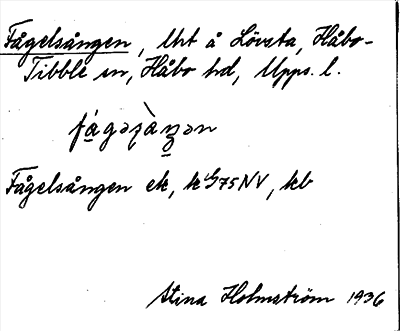 Fågelsången, lht å Lövsta, Håbo-
Tibble sn, Håbo hd, Upps. l.
Fågelsången ek, k 75 NV, kb
Stina Holmström 1936